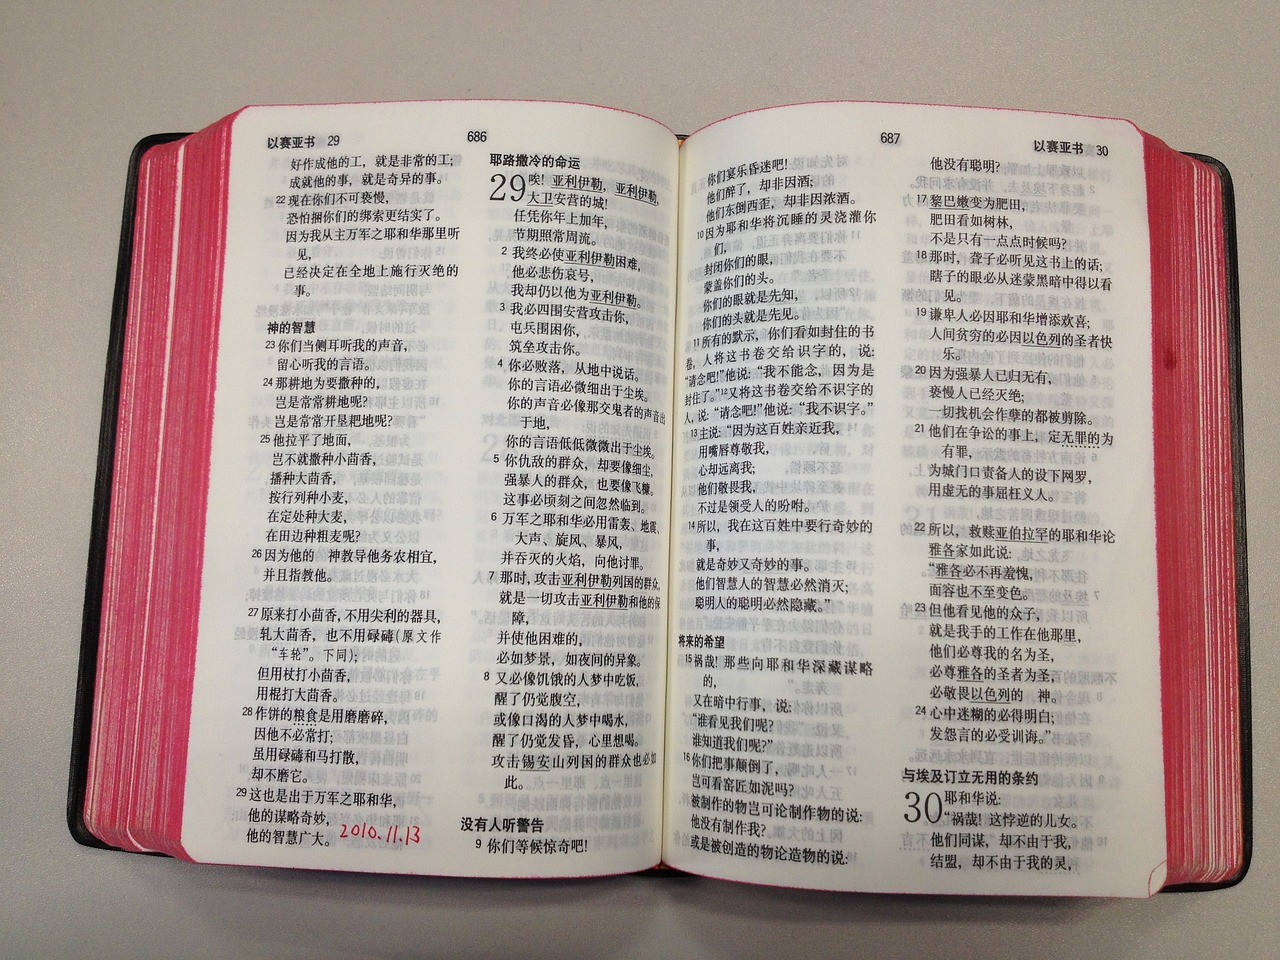 以赛亚书 29
686
好作成他的工，就是非常的工；
成就他的事，就是奇异的事。
22 现在你们不可亵慢，
恐怕捆你们的绑索更结实了。
因为我从主万军之耶和华那里听
见，
已经决定在全地上施行灭绝的
事。
神的智慧
23 你们当侧耳听我的声音，
留心听我的言语。
24 那耕地为要撒种的，
岂是常常耕地呢？
岂是常常开垦耙地呢？
25 他拉平了地面，
岂不就撒种小茴香，
播种大茴香，
按行列种小麦，
在定处种大麦，
在田边种粗麦呢？
26 因为他的 神教导他务农相宜，
并且指教他。
27 原来打小茴香，不用尖利的器具，
轧大茴香，也不用碌碡(原文作
“车轮”。下同)；
但用杖打小茴香，
用棍打大茴香。
28 作饼的粮食是用磨磨碎，
因他不必常打；
虽用碌碡和马打散，
却不磨它。
29 这也是出于万军之耶和华，
他的谋略奇妙，
他的智慧广大。 2010.11.13
耶路撒冷的命运
29 唉！亚利伊勒，亚利伊勒，
大卫安营的城！
任凭你年上加年，
节期照常周流。
2 我终必使亚利伊勒困难，
他必悲伤哀号，
我却仍以他为亚利伊勒。
3 我必四围安营攻击你，
屯兵围困你，
筑垒攻击你。
4 你必败落，从地中说话。
你的言语必微细出于尘埃。
你的声音必像那交鬼者的声音出
于地，
你的言语低低微微出于尘埃。
5 你仇敌的群众，却要像细尘，
强暴人的群众，也要像飞糠。
这事必顷刻之间忽然临到。
6 万军之耶和华必用雷轰、地震、
大声、旋风、暴风，
并吞灭的火焰，向他讨罪。
7 那时，攻击亚利伊勒列国的群众，
就是一切攻击亚利伊勒和他的保
障，
并使他困难的，
必如梦景，如夜间的异象。
8 又必像饥饿的人梦中吃饭，
醒了仍觉腹空，
或像口渴的人梦中喝水，
醒了仍觉发昏，心里想喝。
攻击锡安山列国的群众也必如
此。
没有人听警告
9 你们等候惊奇吧！
687
以赛亚书 30
你们宴乐昏迷吧！
他们醉了，却非因酒；
他们东倒西歪，却非因浓酒。
10 因为耶和华将沉睡的灵浇灌你
们，
封闭你们的眼，
蒙盖你们的头。
你们的眼就是先知，
你们的头就是先见。
11 所有的默示，你们看如封住的书
卷，人将这书卷交给识字的，说：
“请念吧！”他说：“我不能念，因为是
封住了。”12 又将这书卷交给不识字的
人，说：“请念吧！”他说：“我不识字。”
13 主说：“因为这百姓亲近我，
用嘴唇尊敬我，
心却远离我；
他们敬畏我，
不过是领受人的吩咐。
14 所以，我在这百姓中要行奇妙的
事，
就是奇妙又奇妙的事。
他们智慧人的智慧必然消灭；
聪明人的聪明必然隐藏。”
将来的希望
15 祸哉！那些向耶和华深藏谋略
的，
又在暗中行事，说：
“谁看见我们呢？
谁知道我们呢？”
16 你们把事颠倒了，
岂可看窑匠如泥吗？
被制作的物岂可论制作物的说：
他没有制作我？
或是被创造的物论造物的说：
他没有聪明？
17 黎巴嫩变为肥田，
肥田看如树林，
不是只有一点点时候吗？
18 那时，聋子必听见这书上的话；
瞎子的眼必从迷蒙黑暗中得以看
见。
19 谦卑人必因耶和华增添欢喜；
人间贫穷的必因以色列的圣者快
乐。
20 因为强暴人已归无有，
亵慢人已经灭绝；
一切找机会作孽的都被剪除。
21 他们在争讼的事上，定无罪的为
有罪，
为城门口责备人的设下网罗，
用虚无的事屈枉义人。
22 所以，救赎亚伯拉罕的耶和华论
雅各家如此说：
“雅各必不再羞愧，
面容也不至变色。
23 但他看见他的众子，
就是我手的工作在他那里，
他们必尊我的名为圣，
必尊雅各的圣者为圣，
必敬畏以色列的 神。
24 心中迷糊的必得明白；
发怨言的必受训诲。”
与埃及订立无用的条约
30 耶和华说：
“祸哉！这悖逆的儿女。
他们同谋，却不由于我，
结盟，却不由于我的灵，